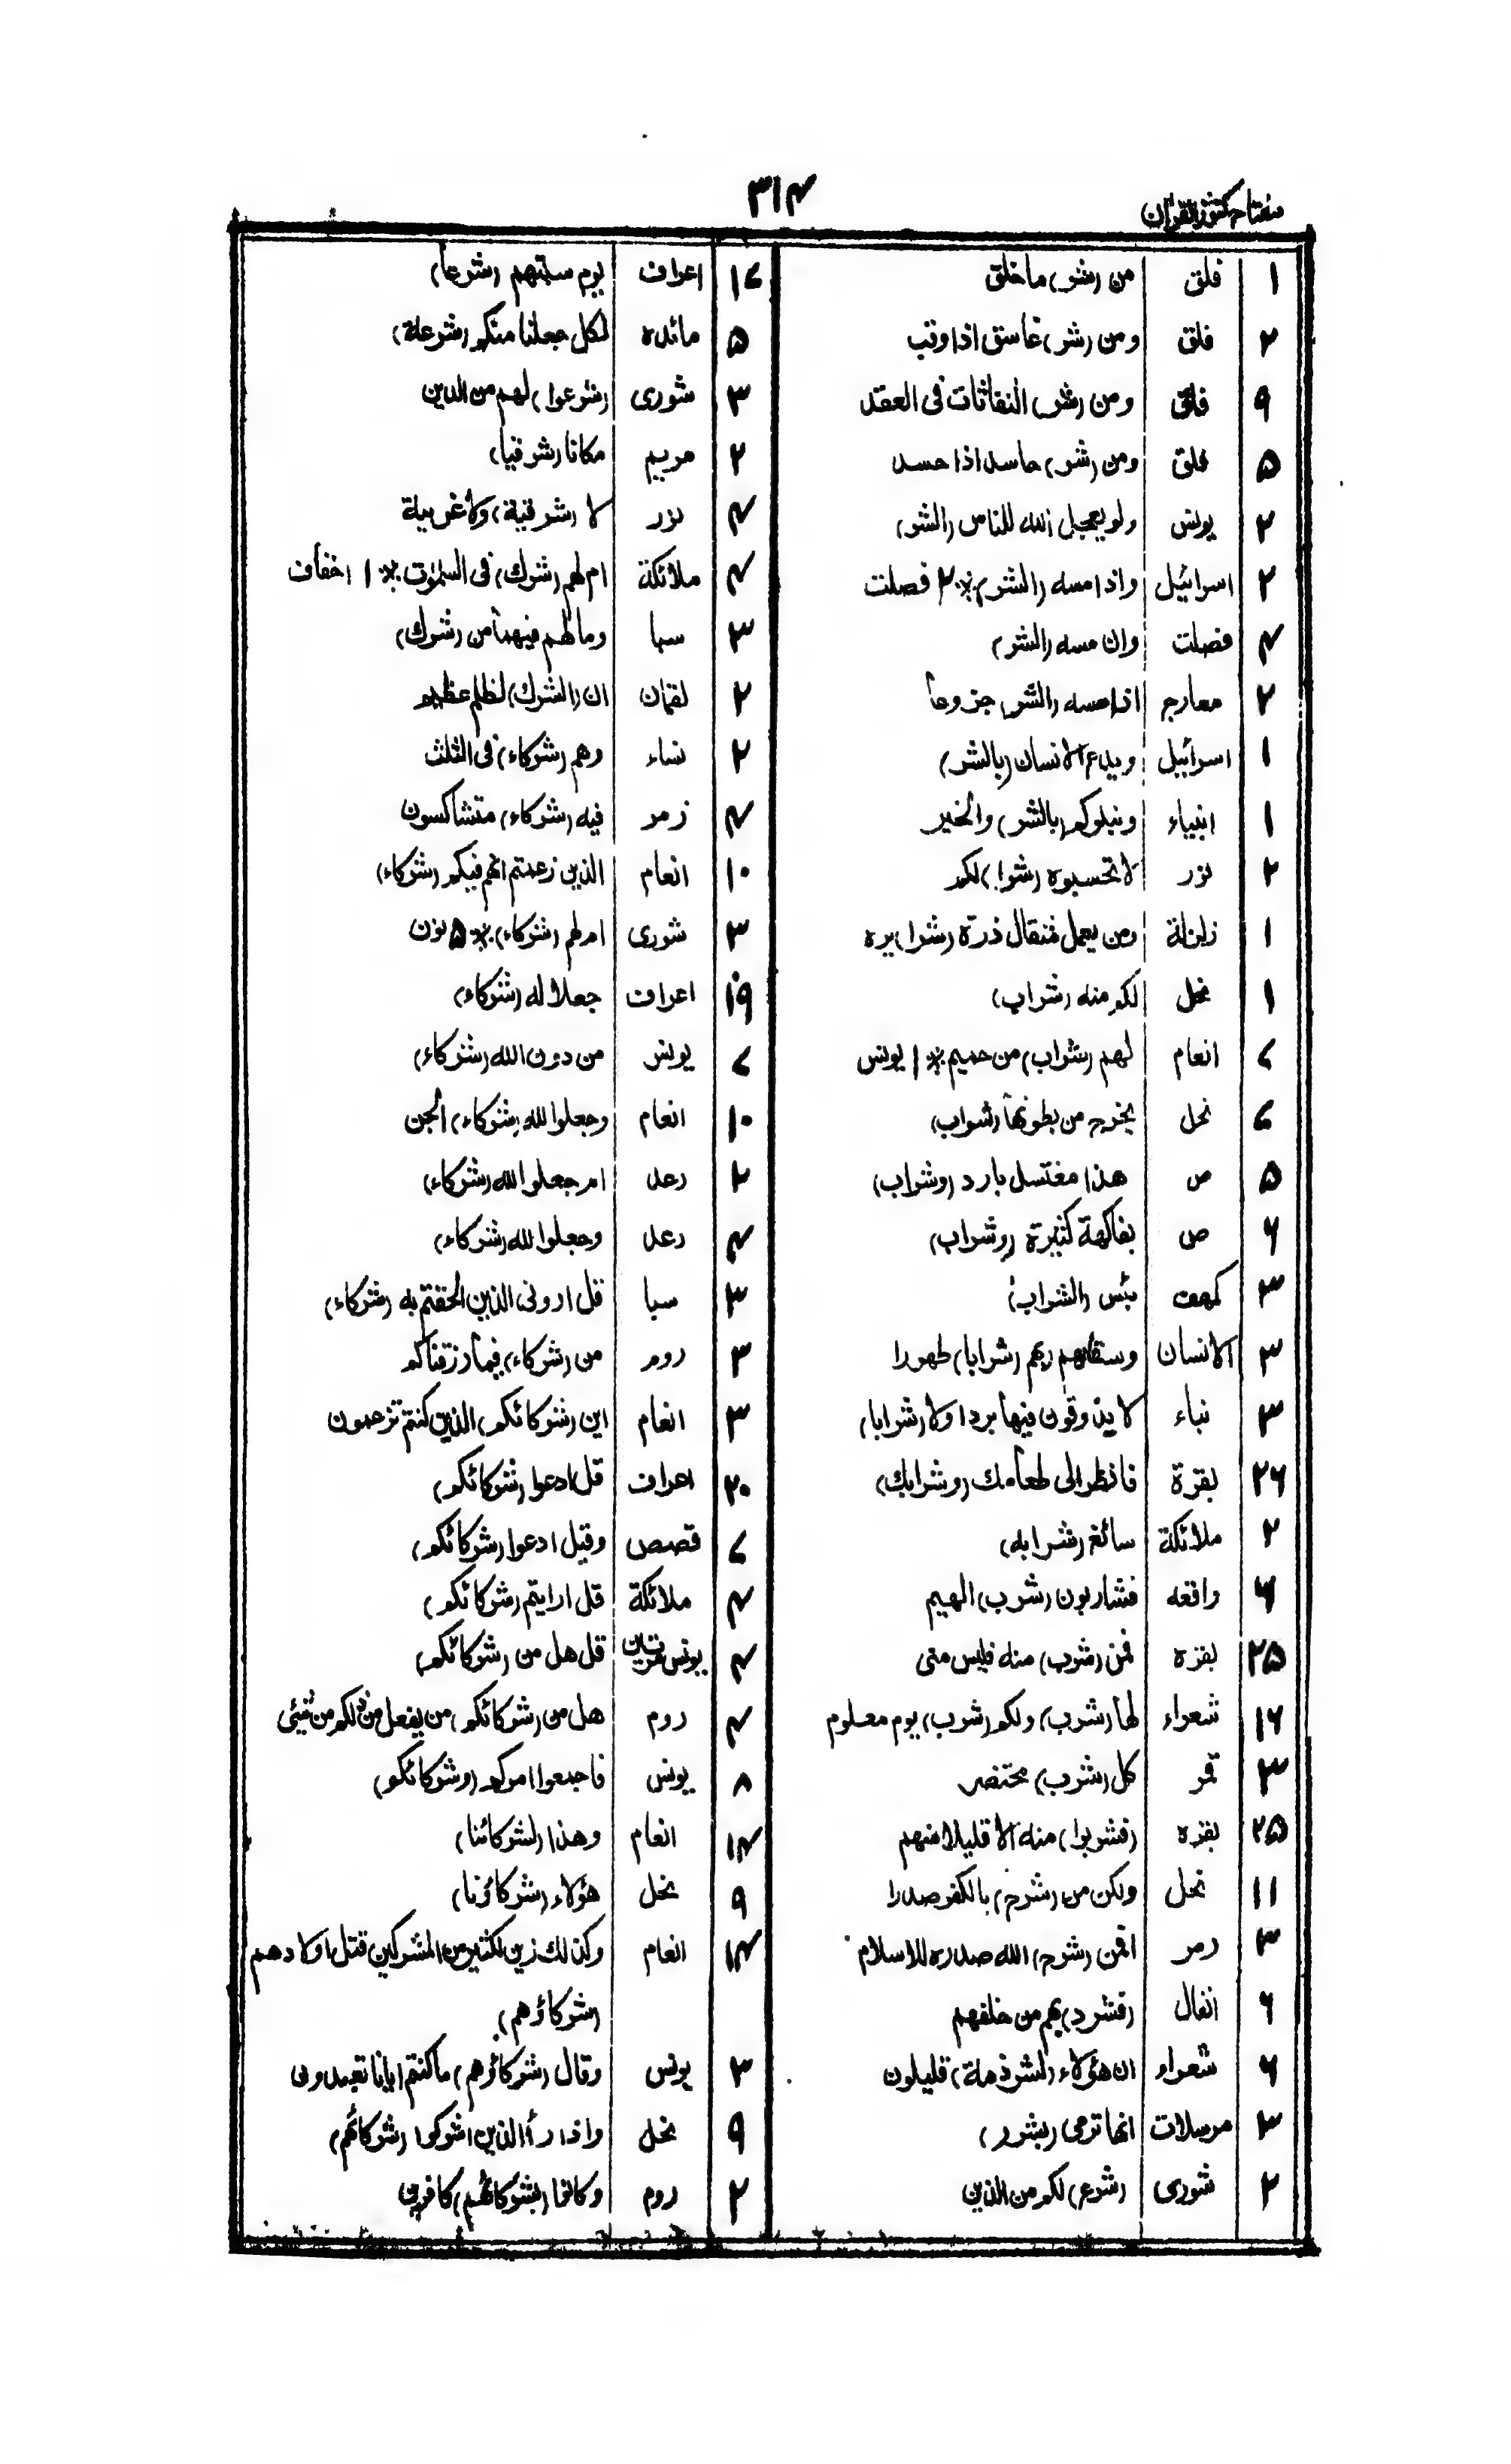 مفتاح کنوز القرآن
۳۱۴
۱ فلق من (شر) ما خلق
۲ فلق ومن (شر) غاسق اذا وقب
۹ فلق ومن (شر) النفاثات فی العقد
۵ فلق ومن (شر) حاسد اذا حسد
۲ یونس ولو یعجل الله للناس (الشر)
۲ اسرائیل واذا مسه (الشر) ٪ ۲ فصلت
۴ فصلت وان مسه (الشر)
۲ معارج اذا مسه (الشر) جزوعا
۱ اسرائیل ویدع الانسان (بالشر)
۱ انبیاء ونبلوکم (بالشر) والخیر
۲ نور لا تحسبوه (شرا) لکم
۱ زلزلة ومن یعمل مثقال ذرة (شرا) یره
۱ نحل لکم منه (شراب)
۷ انعام لهم (شراب) من حمیم ٪ ۱ یونس
۶ نحل یخرج من بطونها (شراب)
۵ ص هذا مغتسل بارد (وشراب)
۶ ص بفاکهة کثیرة (وشراب)
۳ کهف بئس (الشراب)
۳ الانسان وسقاهم ربهم (شرابا) طهورا
۳ نباء لا یذوقون فیها بردا ولا (شرابا)
۲۶ بقرة فانظر الی طعامک (وشرابک)
۲ ملائکة سائغ (شرابه)
۶ واقعه فشاربون (شرب) الهیم
۲۵ بقره فمن (شرب) منه فلیس منی
۱۶ شعراء لها (شرب) ولکم (شرب) یوم معلوم
۳ قمر کل (شرب) محتضر
۲۵ بقره (فشربوا) منه الا قلیلا منهم
۱۱ نحل ولکن من (شرح) بالکفر صدرا
۳ زمر افمن (شرح) الله صدره للاسلام
۶ انفال (فشرد) بهم من خلفهم
۶ شعراء ان هؤلاء (لشرذمة) قلیلون
۳ مرسلات انها ترمی (بشرر)
۲ شوری (شرع) لکم من الدین
۱۶ اعراف یوم سبتهم (شرعا)
۵ مائده لکل جعلنا منکم (شرعة)
۳ شوری (شرعوا) لهم من الدین
۲ مریم مکانا (شرقیا)
۴ نور لا (شرقیة) ولا غربیة
۴ ملائکة ام لهم (شرک) فی السموت ٪ ۱ احقاف
۳ سبا وما لهم فیهما من (شرک)
۲ لقمان ان (الشرک) لظلم عظیم
۲ نساء وهم (شرکاء) فی الثلث
۴ زمر فیه (شرکاء) متشاکسون
۱۰ انعام الذین زعمتم انهم فیکم (شرکاء)
۳ شوری ام لهم (شرکاء) ٪ ۵ نون
۱۹ اعراف جعلا له (شرکاء)
۷ یونس من دون الله (شرکاء)
۱۰ انعام وجعلوا لله (شرکاء) الجن
۲ رعد ام جعلوا لله (شرکاء)
۴ رعد وجعلوا لله (شرکاء)
۳ سبا قل ارونی الذین الحقتم به (شرکاء)
۳ روم من (شرکاء) فیما رزقناکم
۳ انعام این (شرکائکم) الذین کنتم تزعمون
۲۰ اعراف قل ادعوا (شرکائکم)
۷ قصص وقیل ادعوا (شرکائکم)
۴ ملائکة قل ارایتم (شرکائکم)
۴ یونس مرتین قل هل من (شرکائکم)
۴ روم هل من (شرکائکم) من یفعل من ذلکم من شیئ
۸ یونس فاجمعوا امرکم (وشرکائکم)
۱۴ انعام وهذا (لشرکائنا)
۹ نحل هؤلاء (شرکاؤنا)
۱۴ انعام وکذلک زین لکثیر من المشرکین قتل اولادهم
(شرکاؤهم)
۳ یونس وقال (شرکاؤهم) ما کنتم ایانا تعبدون
۹ نحل واذا را الذین اشرکوا (شرکائهم)
۲ روم وکانوا (بشرکائهم) کافرین